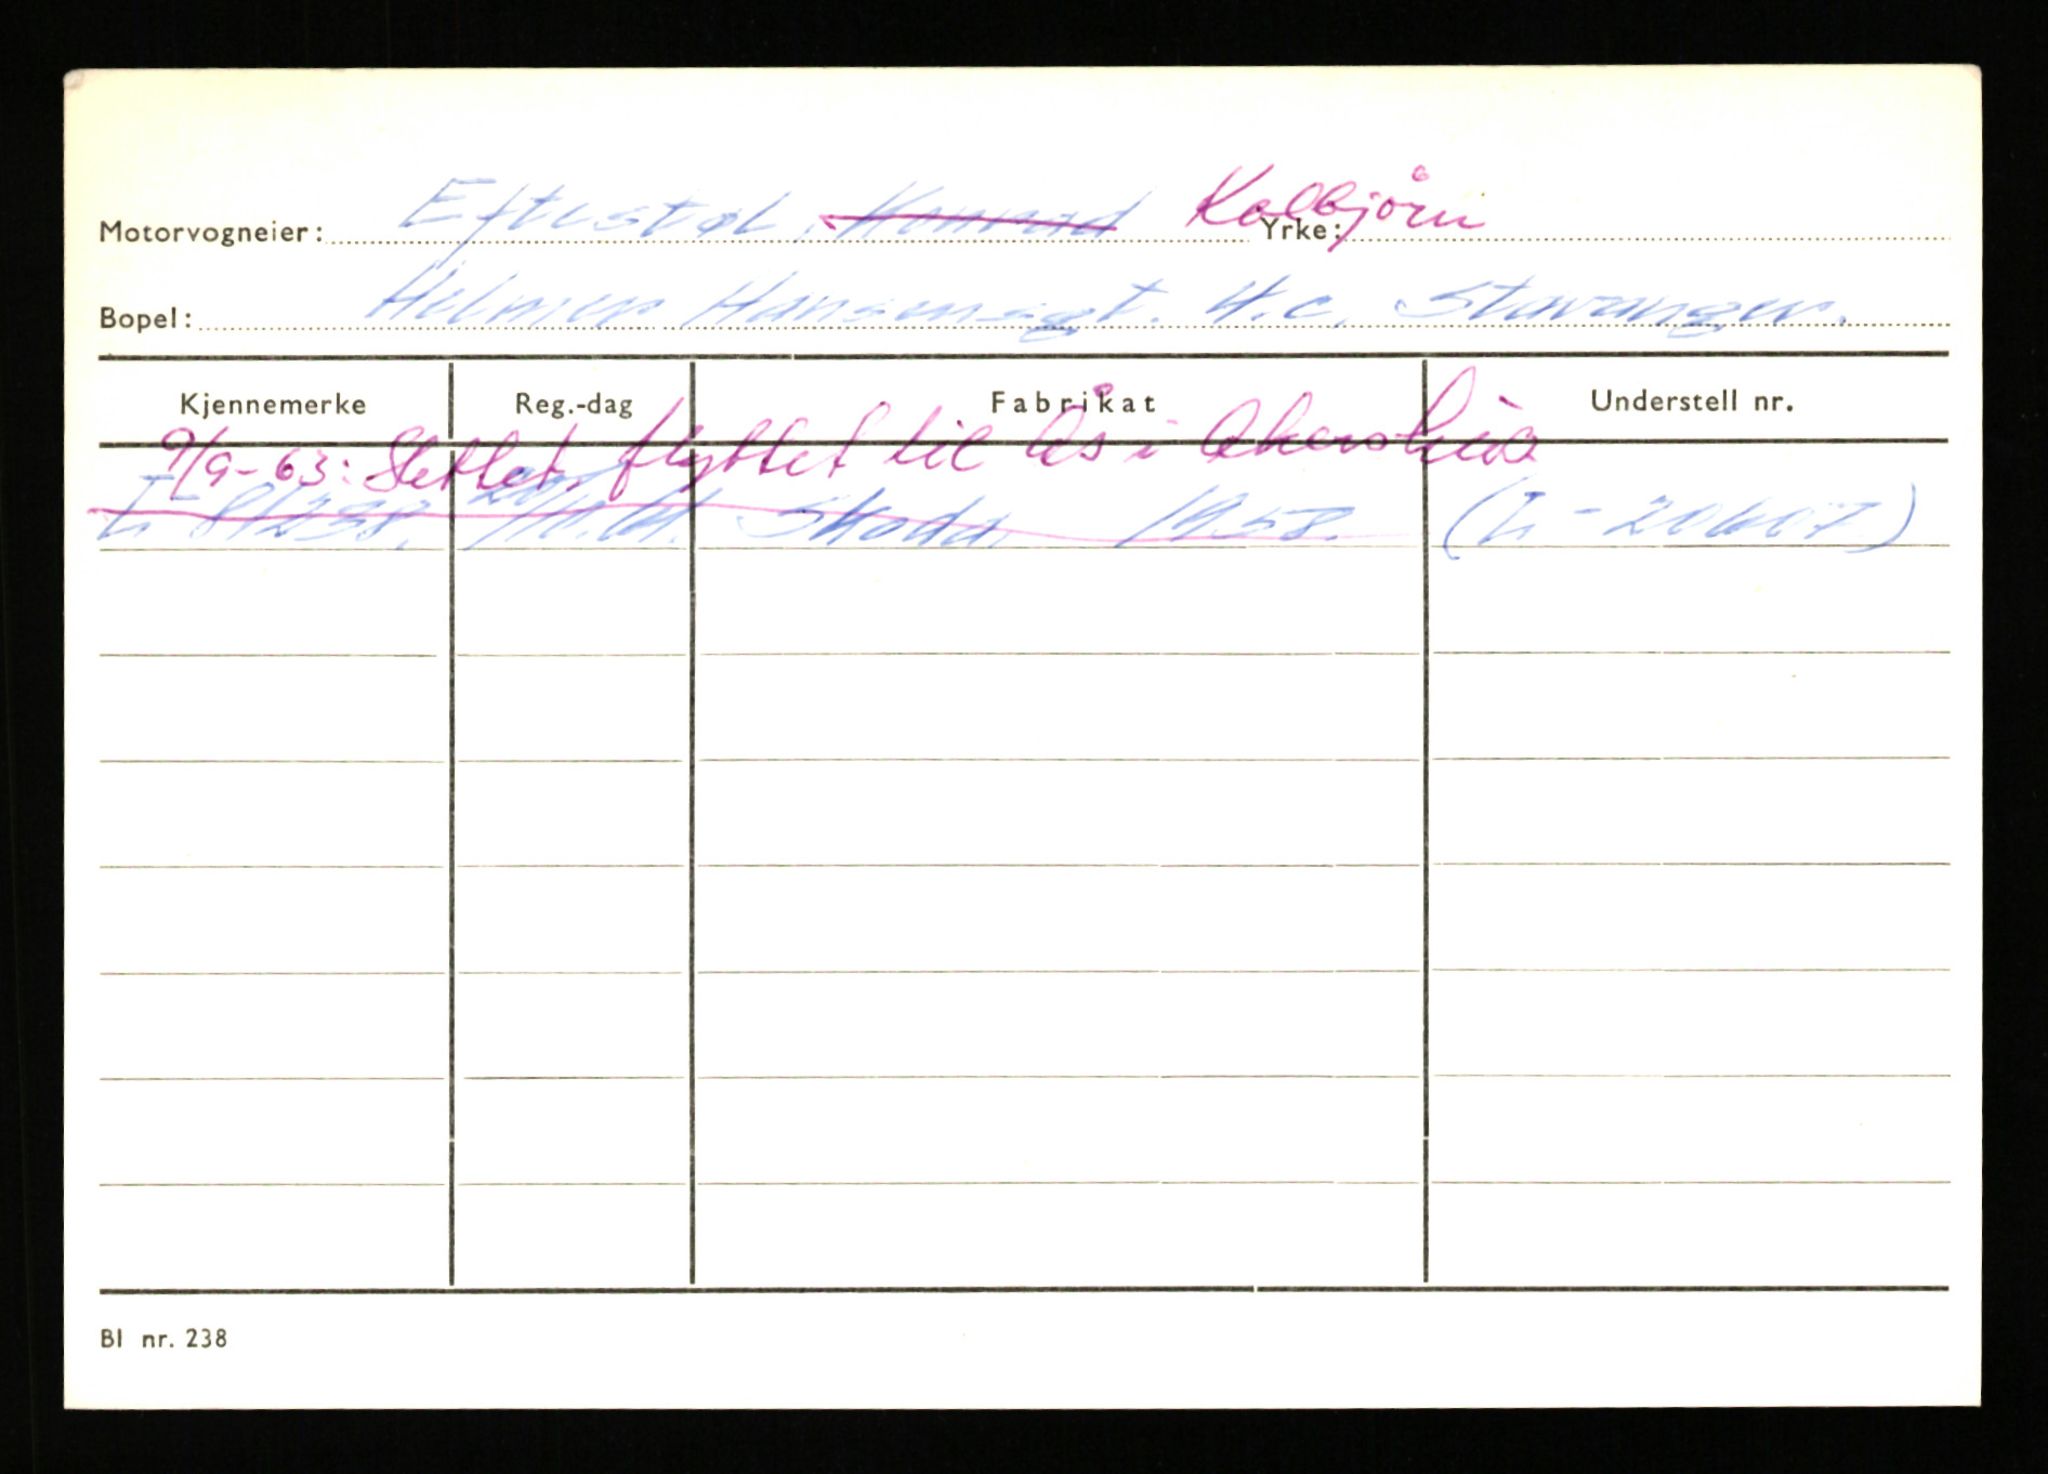 Motorvogneier: Eftestøl, Konrad Kolbjørn Yrke:
Bopel: Helmer Hansensgt. 4.c. Stavanger.
Kjennemerke Reg.-dag Fabrikat Understell nr.
9/9-63: Slettet, flyttet til Ås i Akershus
Skoda 1958. (L-20607)
Bl nr. 238